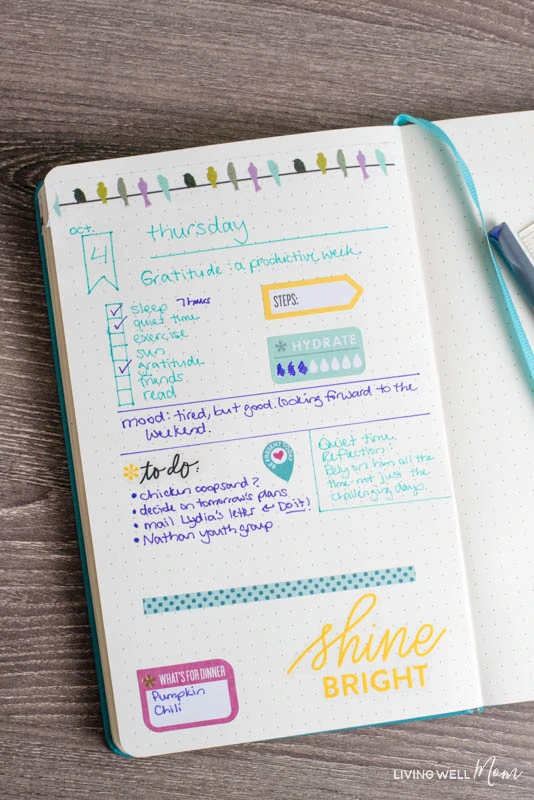 oct.
4
thursday
Gratitude: a productive week
sleep 7 hours
quiet time
exercise
sun
gratitude
friends
read
STEPS:
HYDRATE
mood: tired, but good. looking forward to the
weekend.
to do:
• chicken coop sand?
• decide on tomorrow's plans
• mail Lydia's letter ← Do it!
• Nathan youth group
BE PRESENT TODAY
Quiet time
Reflection:
Rely on him all the
time-not just the
challenging days.
shine
BRIGHT
WHAT'S FOR DINNER
Pumpkin
Chili
LIVING WELL Mom